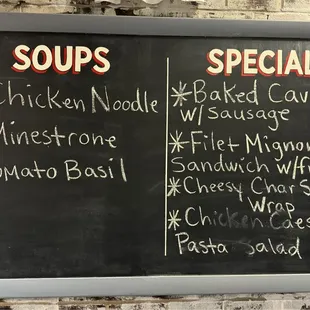 SOUPS
Chicken Noodle
Minestrone
Tomato Basil
SPECIAL
*Baked Cav
w/ Sausage
*Filet Mignon
Sandwich w/f
*Cheesy Char S
Wrap
*Chicken Caes
Pasta Salad